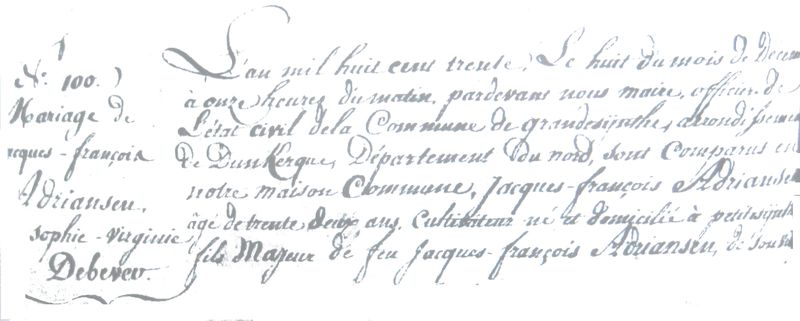 N.º 100.
Mariage de
acques-françois
Adriansen,
sophie-virginie
Debever.
L'an mil huit cent trente, Le huit du mois de decem
à onze heures du matin, pardevant nous maire, officier de
L'état civil de la Commune de grandesynthe, arondissemen
de Dunkerque, Département du nord, sont Comparus en
notre maison Commune, Jacques-françois Adriansen
âgé de trente deux ans, Cultivateur né et domicilié à petitesynt
fils Majeur de feu Jacques-françois Adriansen, de son